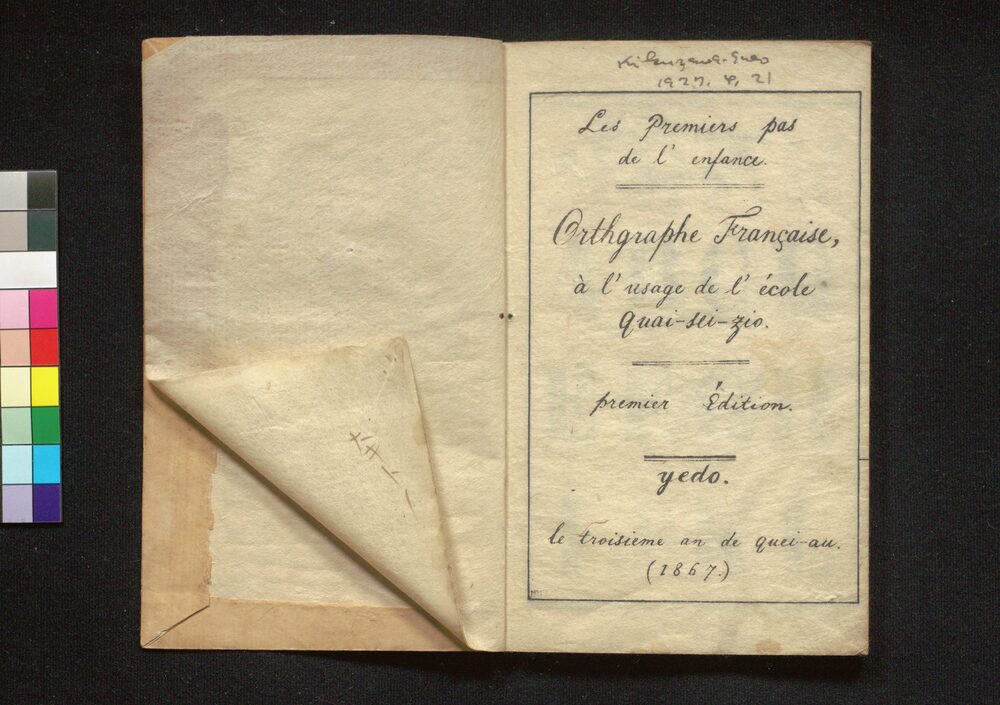 1927. 4. 21
Les Premiers pas
de l' enfance.
Orthgraphe Française,
à l' usage de l' école
quai-sei-zio.
premier Édition.
yedo.
le troisieme an de quei-au.
(1867.)